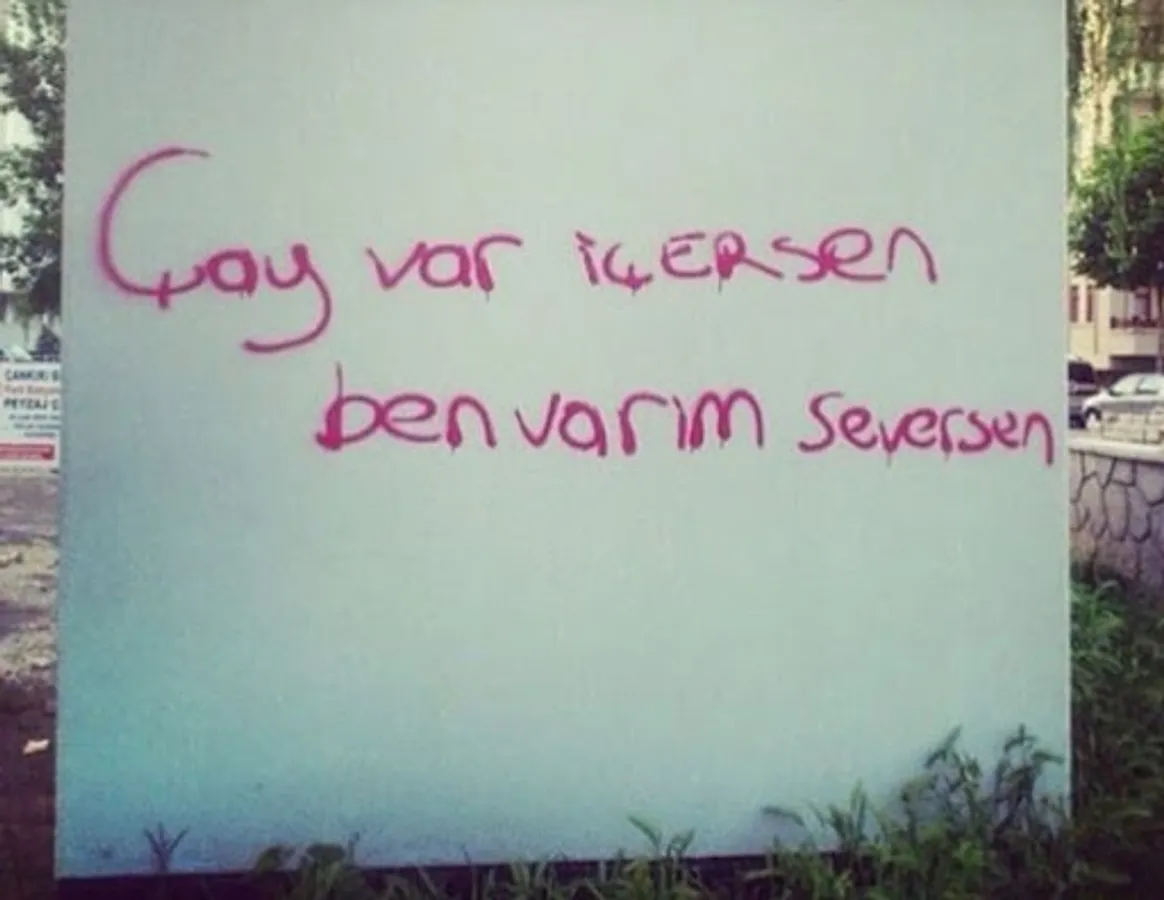 Çay var içERsen
ben varım seversen
ÇANKIRI
PEYZAJ